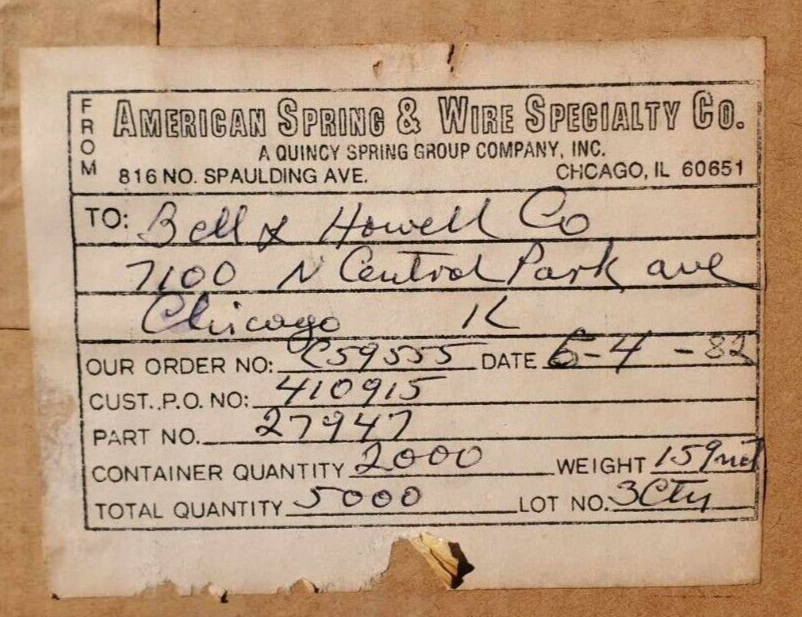 FROM
AMERICAN SPRING & WIRE SPECIALTY CO.
A QUINCY SPRING GROUP COMPANY, INC.
816 NO. SPAULDING AVE. CHCAGO, IL 60651
TO: Bell & Howell Co
7100 N Central Park ave
Chicago IL
OUR ORDER NO: C59555 DATE 6-4-82
CUST. P.O. NO: 410915
PART NO. 27947
CONTAINER QUANTITY 2000 WEIGHT 159
TOTAL QUANTITY 5000 LOT NO. 3